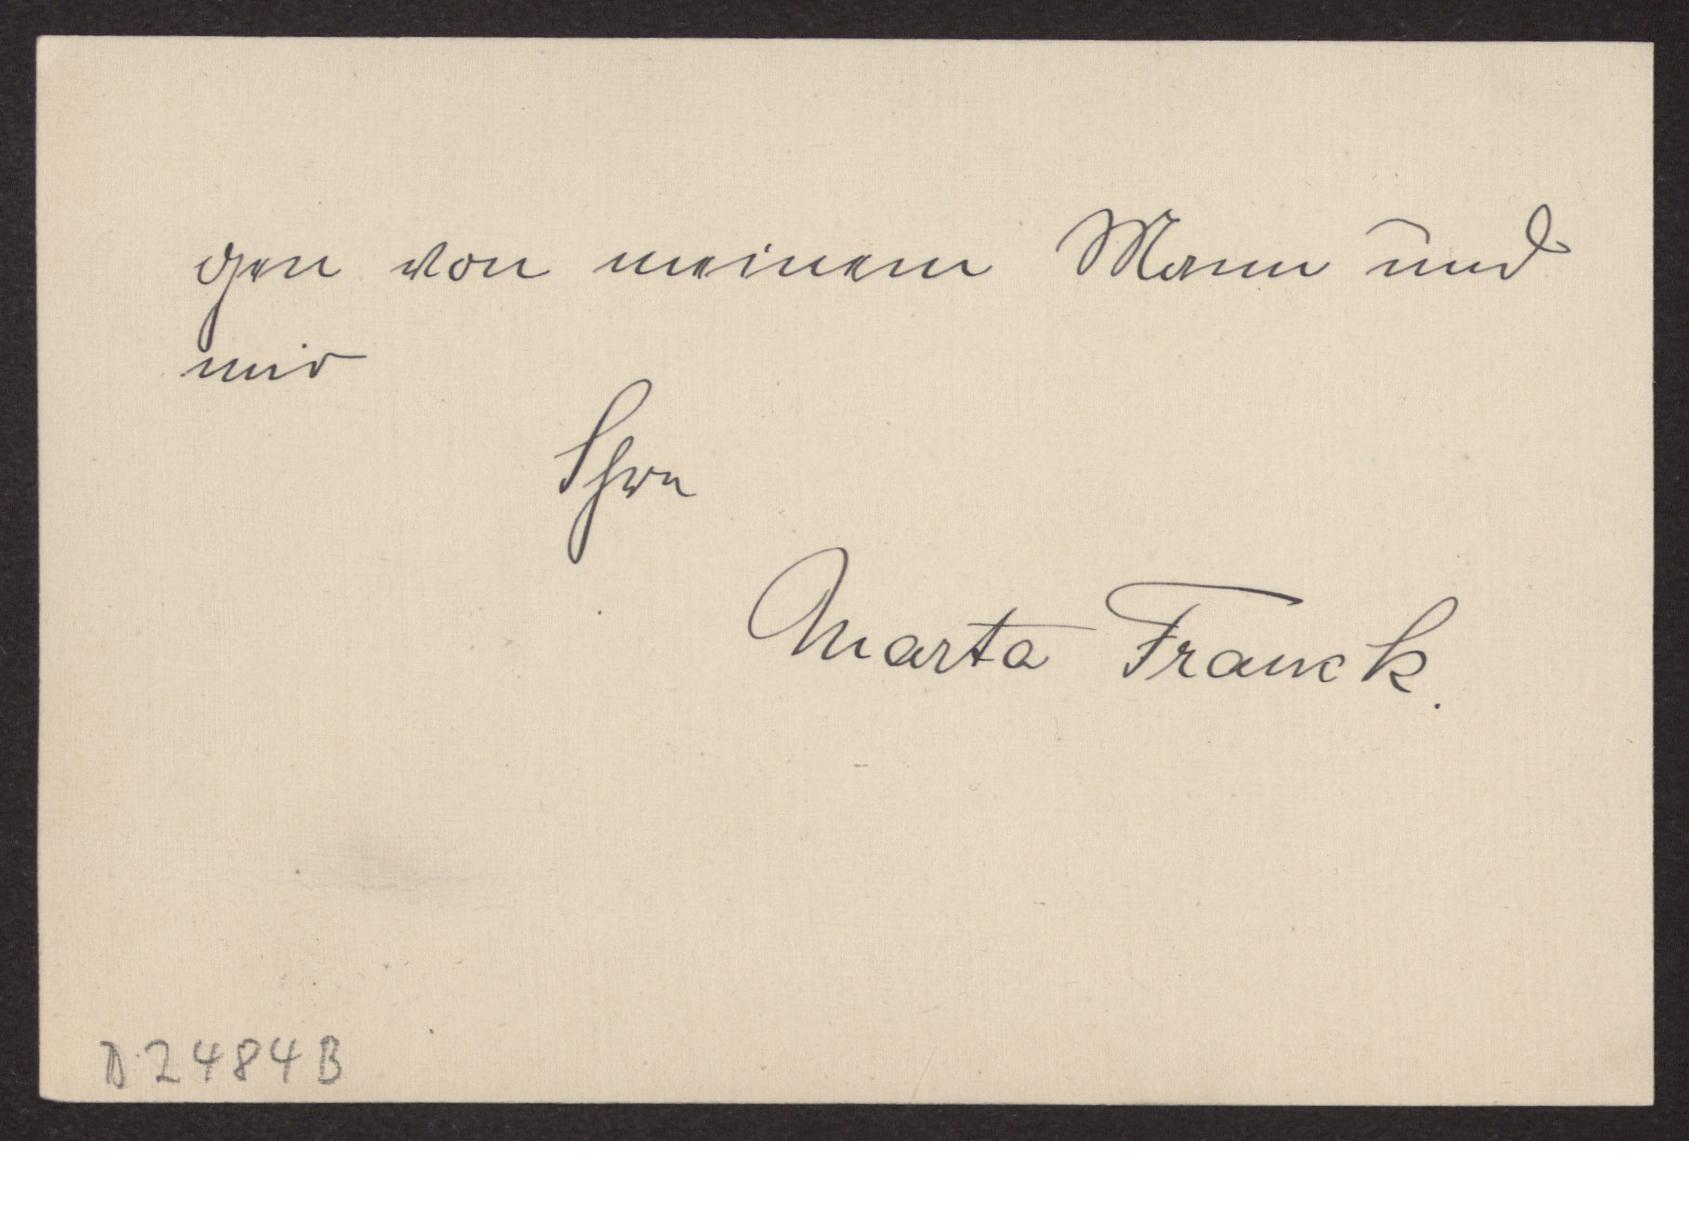 gen von meinem Mann und
mir
Ihre
Marta Franck.
D 2484 B